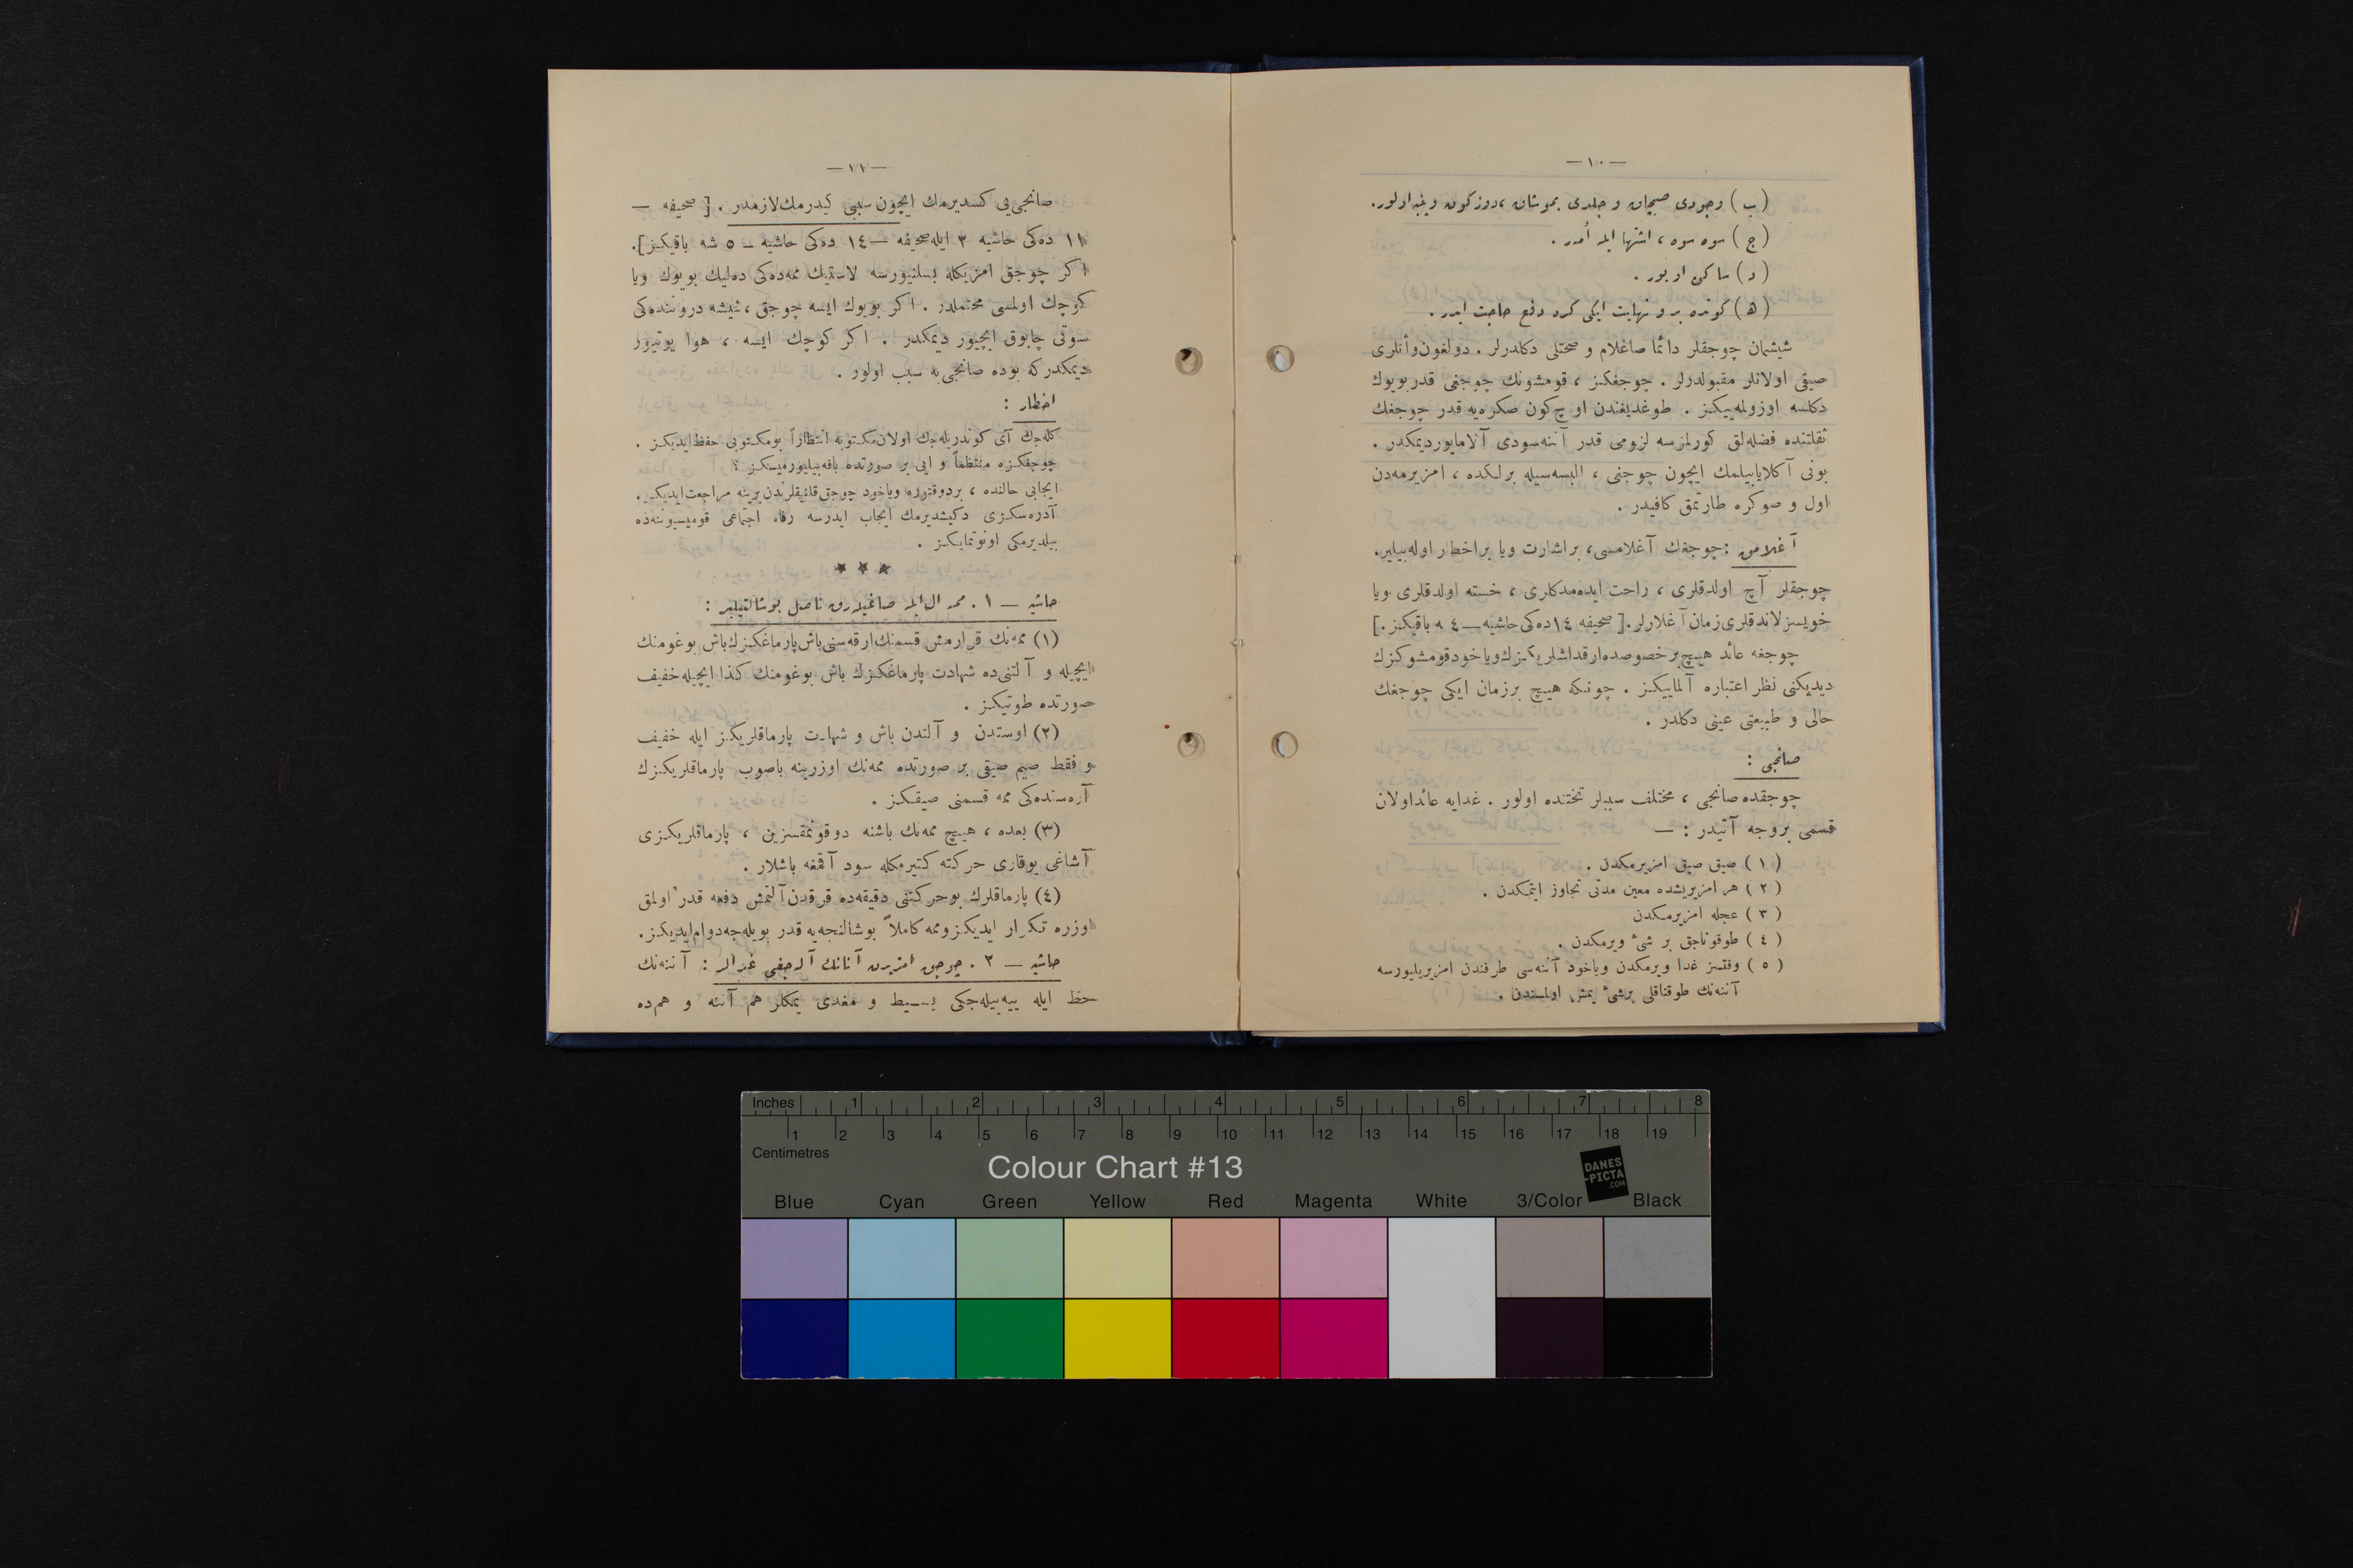 — ١٠ —
(ب) وجودى صيجاق و جلدى يموشاق ، دوزكون و پنبه اولور.
(ج) سوه سوه ، اشتها ايله أمر .
(د) ساكن اويور .
(ه) كونده بر و نهايت ايكى كره دفع حاجت ايدر .
شيشمان چوجقلر دائما صاغلام و صحتلى دكلدرلر . دولغون و أتلرى
صيقى اولانلر مقبولدرلر . چوجغكز ، قومشونك چوجغى قدر بويوك
دكلسه اوزولمه‌ييكز . طوغديغندن اوچ كون صكره‌يه قدر چوجغك
ثقلتنده فضله‌لق كورلمزسه لزومى قدر آننه‌سودى آلامايور ديمكدر .
بونى آكلايابيلمك ايچون چوجغى ، البسه‌سيله برلكده ، امزيرمه‌دن
اول و صوكره طارتمق كافيدر .
آغلامق : چوجغك آغلامسى ، بر اشارت ويا بر اخطار اوله‌بيلير.
چوجقلر آچ اولدقلرى ، راحت ايده‌مدكلرى ، خسته اولدقلرى ويا
خويسزلاندقلرى زمان آغلارلر. [ صحيفه ١٤ ده‌كى حاشيه — ٤ ه باقيكز . ]
چوجغه عائد هيچ بر خصوصده ارقداشلريكزك وياخود قومشوكزك
ديديكنى نظر اعتباره آلماييكز . چونكه هيچ بر زمان ايكى چوجغك
حالى و طبيعتى عينى دكلدر .
صانجى :
چوجقده صانجى ، مختلف سببلر تحتنده اولور . غدايه عائد اولان
قسمى بروجه آتيدر : —
(١) صيق صيق امزيرمكدن .
(٢) هر امزيريشده معين مدتى تجاوز ايتمكدن .
(٣) عجله امزيرمكدن
(٤) طوقوناجق بر شئ ويرمكدن .
(٥) وقتسز غدا ويرمكدن وياخود آننه‌سى طرفندن امزيريليورسه
آننه‌نك طوقناقلى برشئ يمش اولمسندن .
— ١١ —
صانجى‌يى كسديرمك ايچون سببى كيدرمك لازمدر . [ صحيفه —
١١ ده‌كى حاشيه ٢ ايله صحيفه — ١٤ ده‌كى حاشيه — ٥ شه باقيكز ].
اكر چوجق امزيكله بسلنيورسه لاستيك ممه‌ده‌كى ده‌ليك بويوك ويا
كوچك اولمسى محتملدر . اكر بويوك ايسه چوجق ، شيشه دروننده‌كى
سوتى چابوق ايچيور ديمكدر . اكر كوچك ايسه ، هوا يوتيور
ديمكدر كه بوده صانجى‌يه سبب اولور .
اخطار :
كله‌جك آى كوندريله‌جك اولان مكتوبه انتظاراً بومكتوبى حفظ ايديكز .
چوجغكزه منتظماً و ايى بر صورتده باقه‌بيليورميسكز ؟
ايجابى حالنده ، بر دوقتوره وياخود چوجق قلنيقلرندن برينه مراجعت ايديكز .
آدره‌سكزى دكيشديرمك ايجاب ايدرسه رفاه اجتماعى قوميسيوننه‌ده
بيلديرمكى اونوتمايكز .
★ ★ ★
حاشيه — ١ . ممه ال ايله صاغيلارق ناصل بوشالتيلير :
(١) ممه‌نك قرارمش قسمنك ارقه‌سنى باش پارماغكزك باش بوغومنك
ايچيله و آلتنى‌ده شهادت پارماغكزك باش بوغومنك كذا ايچيله خفيف
صورتده طوتيكز .
(٢) اوستدن و آلتدن باش و شهادت پارماقلريكز ايله خفيف
و فقط صيم صيقى بر صورتده ممه‌نك اوزرينه باصوب پارماقلريكزك
آره‌سنده‌كى ممه قسمنى صيقكز .
(٣) بعده ، هيچ ممه‌نك باشنه دوقونمقسزين ، پارماقلريكزى
آشاغى يوقارى حركته كتيرمكله سود آقمغه باشلار .
(٤) پارماقلرك بو حركتنى دقيقه‌ده قرقدن آلتمش دفعه قدر اولمق
اوزره تكرار ايديكز و ممه كاملاً بوشالنجه‌يه قدر بويله‌جه دوام ايديكز.
حاشيه — ٢ . چوجق امزيرن آنانك آله‌جغى غدالر : آننه‌نك
حظ ايله ييه‌بيله‌جكى بسيط و مغدى يمكلر هم آننه و هم‌ده
Inches 1 2 3 4 5 6 7 8
1 2 3 4 5 6 7 8 9 10 11 12 13 14 15 16 17 18 19
Centimetres
Colour Chart #13
DANES
-PICTA
.COM
Blue Cyan Green Yellow Red Magenta White 3/Color Black